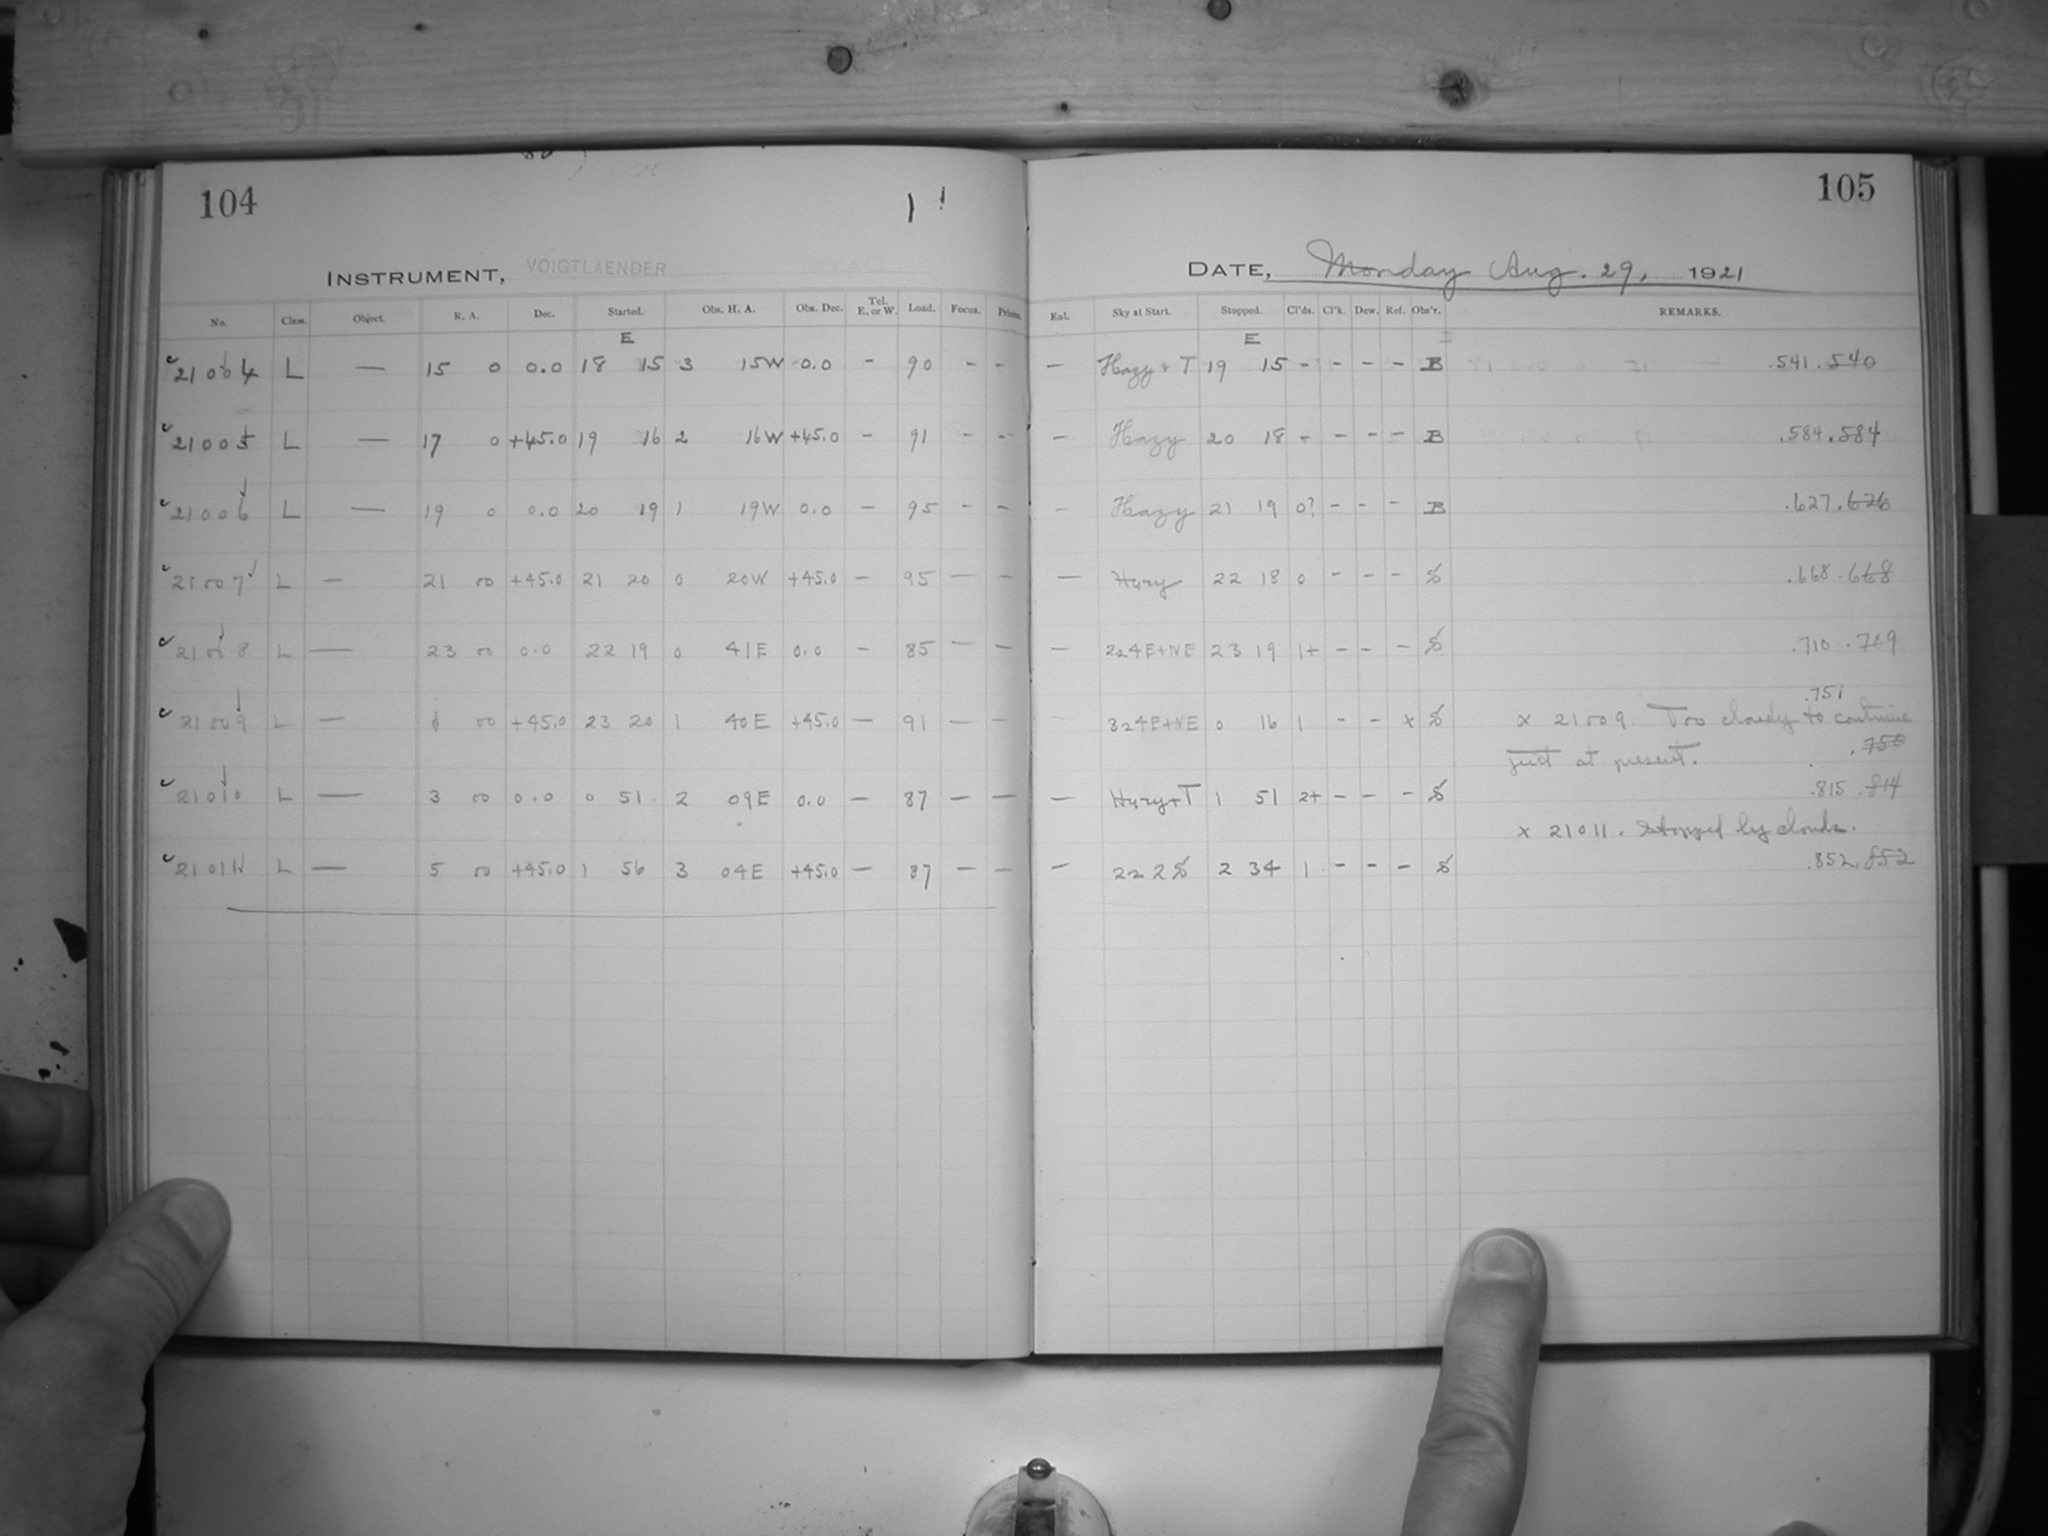 104
INSTRUMENT, VOIGTLAENDER
No. Class. Object. R. A. Dec. Started. Obs. H. A. Obs. Dec. Tel. E. or W. Load. Focus. Prisms.
E
21004 L — 15 0 0.0 18 15 3 15W 0.0 - 90 - -
21005 L — 17 0 +45.0 19 16 2 16W +45.0 - 91 - --
21006 L — 19 0 0.0 20 19 1 19W 0.0 - 95 - -
21007 L — 21 00 +45.0 21 20 0 20W +45.0 - 95 - -
21008 L — 23 00 0.0 22 19 0 41E 0.0 - 85 - -
21009 L — 00 +45.0 23 20 1 40E +45.0 - 91 - -
21010 L — 3 00 0.0 0 51 2 09E 0.0 - 87 - -
21011 L — 5 00 +45.0 1 56 3 04E +45.0 - 87 - -
105
DATE, Monday Aug. 29, 1921
Enl. Sky at Start. Stopped. Cl'ds. Cl'k. Dew. Ref. Obs'r. REMARKS.
E
— Hazy + T 19 15 - - - - B .541 .540
— Hazy 20 18 - - - - B .584 .584
— Hazy 21 19 0? - - - B .627 .626
— Hazy 22 18 0 - - - S .668 .668
— 224E+NE 23 19 1+ - - - S .710 .709
.751
324E+NE 0 16 1 - - x S x 21009. Too cloudy to continue
just at present. .750
— Hazy+T 1 51 2+ - - - S .815 .814
x 21011. Stopped by clouds.
— 222S 2 34 1 - - - S .852 .852